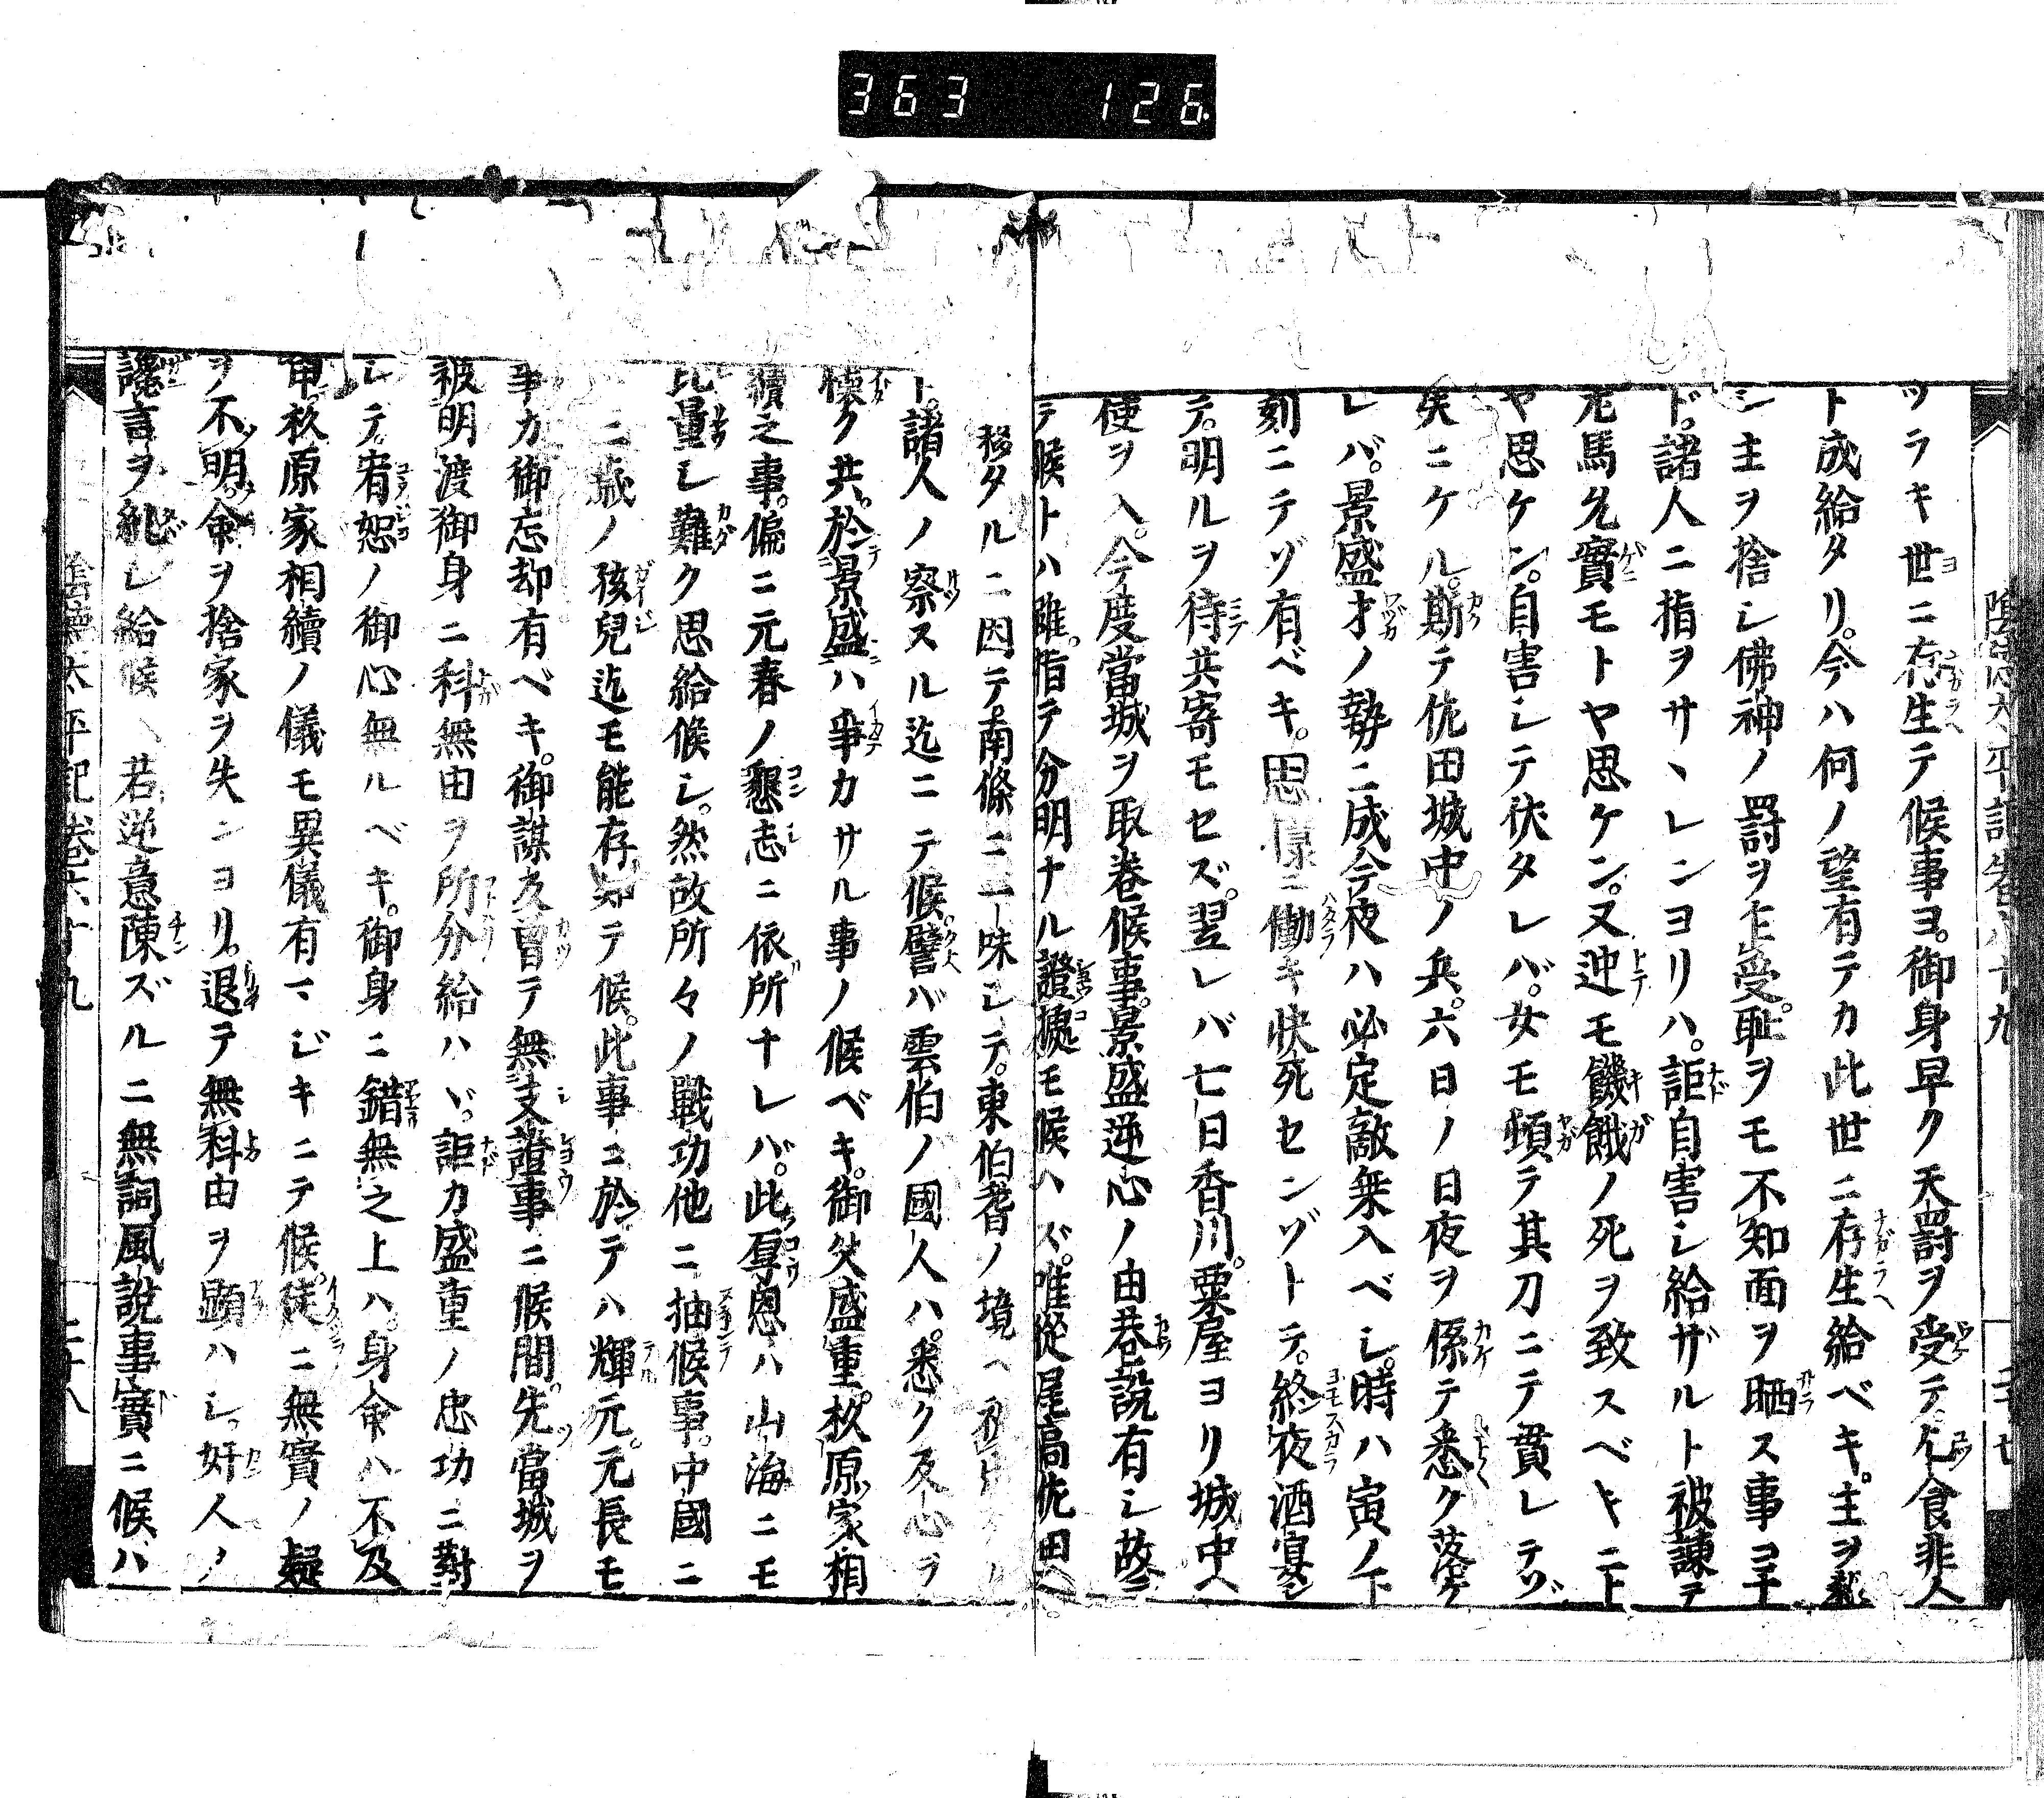 363 126
陰德太平記卷六十九 二十七
ツラキ世ニ存生テ候事ヨ。御身早ク天罸ヲ受テ。乞食非人
ト成給タリ。今ハ何ノ望有テカ此世ニ存生給ベキ。主ヲ殺
シ主ヲ捨シ佛神ノ罸ヲ上受。耻ヲモ不知面ヲ晒ス事ヨナ
ド。諸人ニ指ヲサヽレンヨリハ。詎自害シ給ザルト被諫テ
左馬允實モトヤ思ケン。又迚モ饑餓ノ死ヲ致スベキニト
ヤ思ケン。自害シテ伏タレバ。女モ頓テ其刀ニテ貫レテゾ
矣ニケル。斯テ佐田城中ノ兵。六日ノ日夜ヲ係テ悉ク落ケ
レバ。景盛才ノ勢ニ成今夜ハ必定敵乗入ベシ。時ハ寅ノ下
刻ニテゾ有ベキ。思 ニ働キ快死センゾトテ。終夜酒宴シ
テ。明ルヲ待共寄モセズ。翌レバ七日香川。粟屋ヨリ城中ヘ
使ヲ入。今度當城ヲ取卷候事。景盛逆心ノ由巷説有シ故ニ
テ候トハ雖。指テ分明ナル證據モ候ハズ。唯從尾高佐田ヘ
移タルニ因テ。南條ニ一味シテ。東伯耆ノ境ヘ
ト。諸人ノ察スル迄ニテ候。譬バ雲伯ノ國人ハ。悉ク反心ヲ
懷ク共。於景盛ハ爭カサル事ノ候ベキ。御父盛重。杦原家相
續之事。偏ニ元春ノ懇志ニ依所ナレバ。此厚恩ハ山海ニモ
比量シ難ク思給候シ。然故所々ノ戰功他ニ抽候事。中國ニ
二歳ノ孩兒迄モ能存知テ候。此事ニ於テハ輝元。元長モ
爭カ御忘却有ベキ。御謀反曾テ無支證事ニ候間。先當城ヲ
被明渡御身ニ科無由ヲ所分給ハヾ。詎カ盛重ノ忠功ニ對
シテ。宥恕ノ御心無ルベキ。御身ニ錯無之上ハ。身命ハ不及
申。杦原家相續ノ儀モ異儀有マジキニテ候。徒ニ無實ノ疑
ヲ不明。命ヲ捨家ヲ失ンヨリ。退テ無科由ヲ顯ハシ。奸人ノ
讒言ヲ糺シ給候ヘ若逆意陳ズルニ無詞風説事實ニ候ハ
陰德太平記卷六十九 二十八